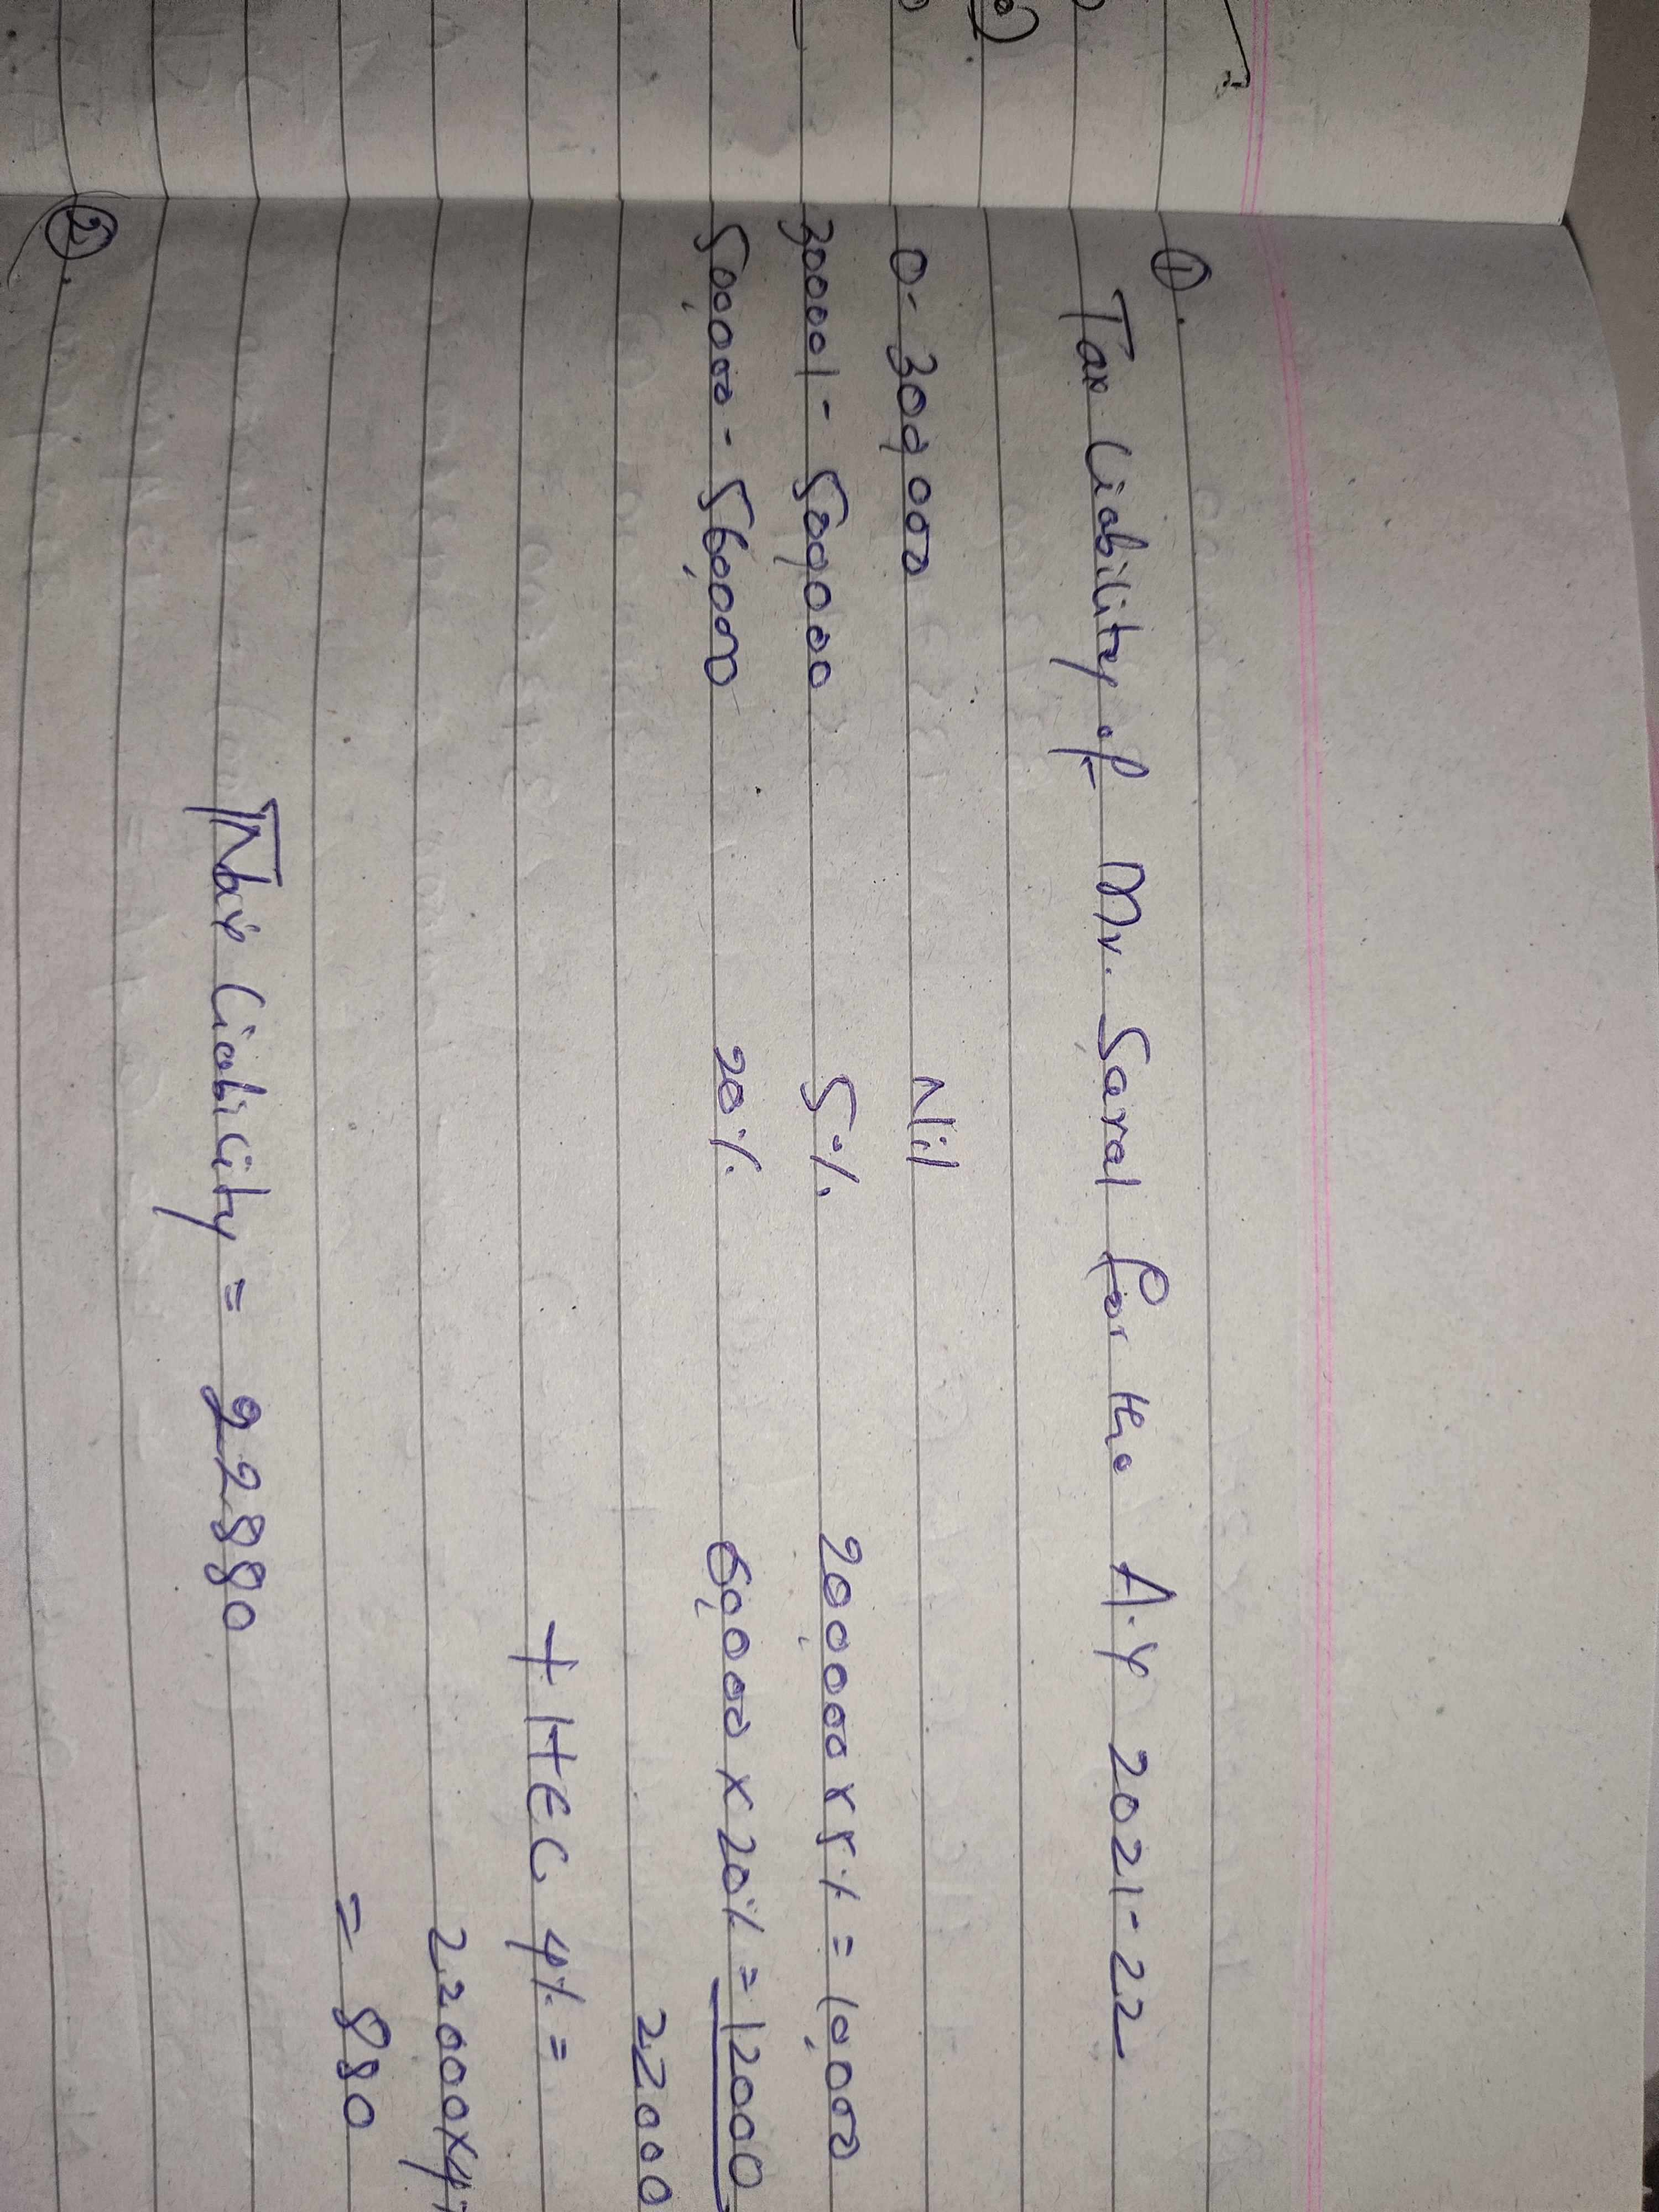 ①.
Tax Liability of Mr. Saral for the A.Y 2021-22
0- 300,000 Nil
300001- 500,000 5% 200,000 x 5% = 10,000
500,000 - 560,000 20% 60,000 x 20% = 12000
22000
+ HEC 4% =
22000x4%
= 880
Tax Liability = 22880
②.